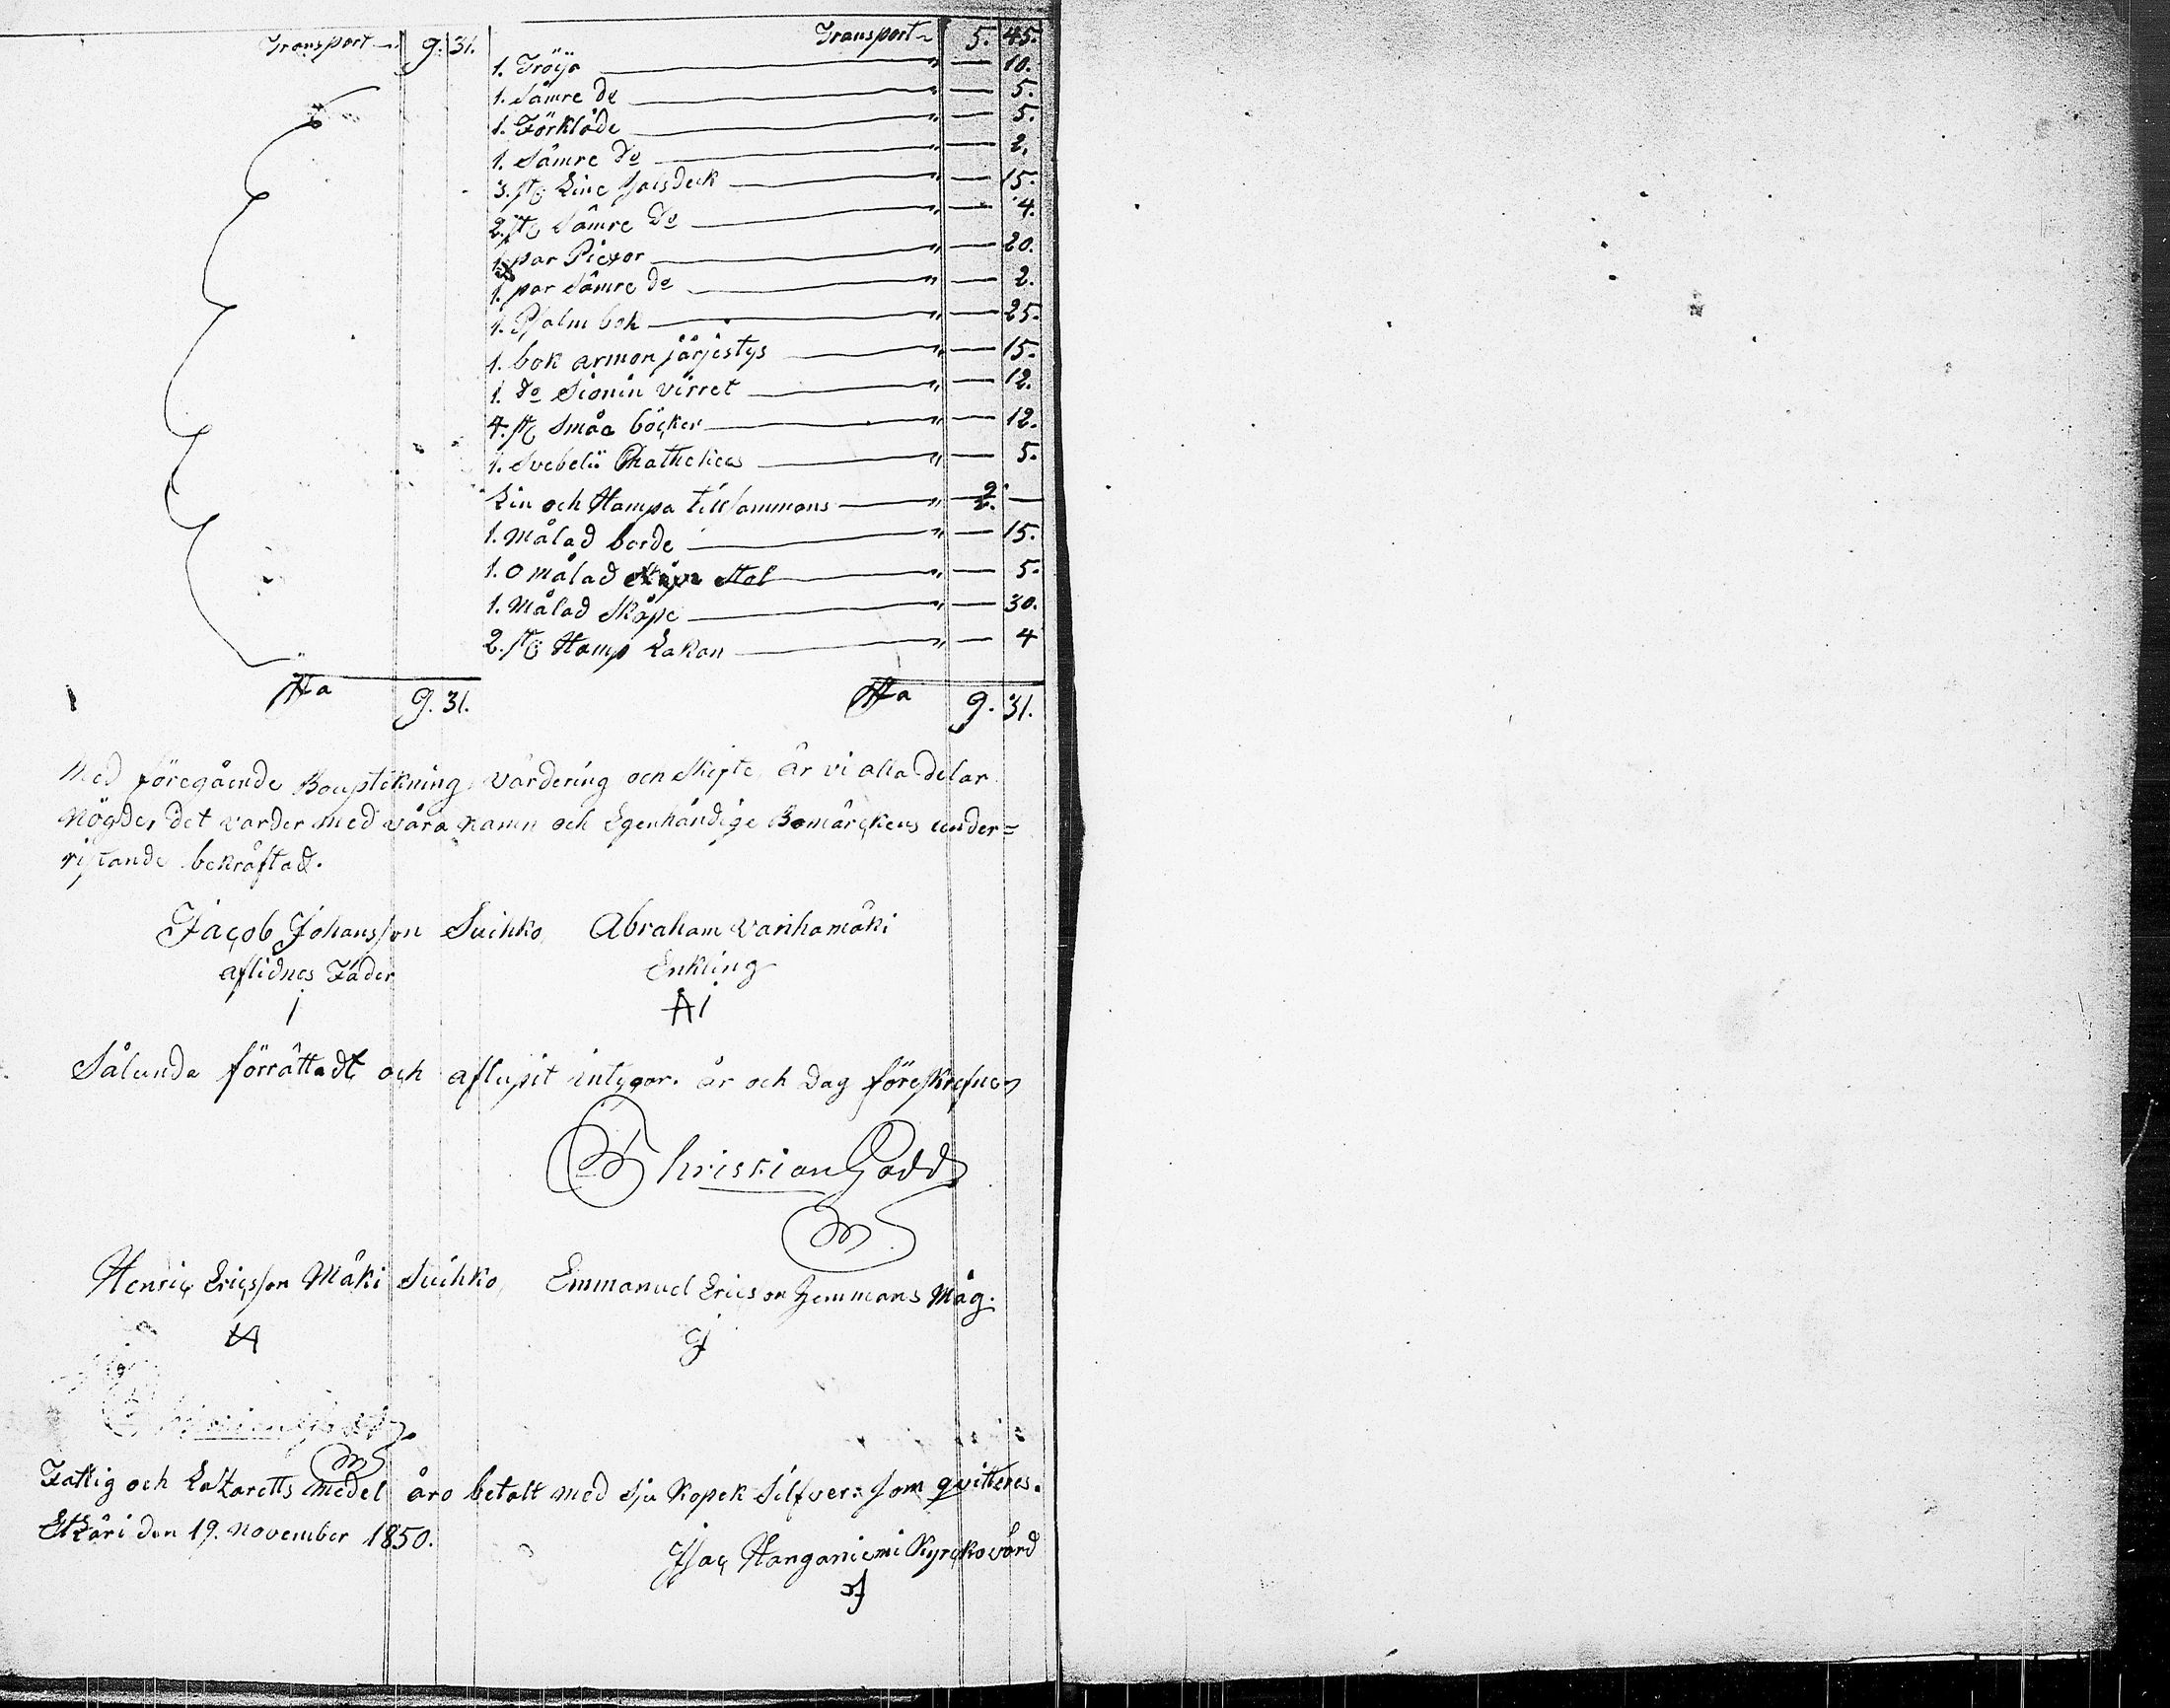 Transport 9. 31.
Transport 5. 45.
1. Tröija " — 10.
1. Sämre do " — 5.
1. Förkläde " — 5.
1. Sämre do " — 2.
3. st: Line halsduk " — 15.
2. st: Sämre do " — 4.
1. par Piexor " — 20.
1. par Sämre do " — 2.
1. Psalm bok " — 25.
1. bok armon järjestys " — 15.
1. do Sionin virret " — 12.
4. st: Småa böcker " — 12.
1. Svebelii Chathekies " — 5.
Lin och Hampa tillsammans " 2. —
1. Målad borde " — 15.
1. O målad Stol " — 5.
1. Målad Skåpe " — 30.
2. st: Hamp Lakan " — 4
S:a 9. 31.
S:a 9. 31.
Med föregående Bouptekning, värdering och Skifte, är vi alla delar
Nögde, det varder med våra namn och Egenhändige Bomärckens under=
ristande bekräftad.
Jacob Johansson Suihko, Abraham Vanhamäki
aflidnes Fader Enkling
i AI
Sålunda förrättadt och aflupit intygar. år och Dag föreskrefne
Christian Gadd
Henric Ericsson Mäki Suihko, Emmanuel Ericson Hemmans Måg.
Fattig och Lazaretts medel äro betalt med Sju Kopek Silfver: som qvitteras.
Etzäri den 19. November 1850.
Isac Hanganiemi Kyrckovärd